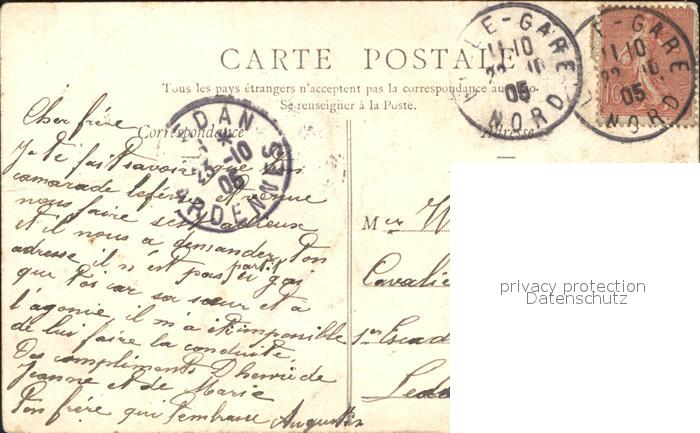 CARTE POSTALE
Tous les pays étrangers n'acceptent pas la correspondance au
Se renseigner à la Poste.
LILLE-GARE
11-10
22-10
05
NORD
E-GARE
11-10
22-10
05
NORD
Correspondance
Adresse
SEDAN
23-10
05
ARDENNES
Cher frère
Je te fait savoir que ton
camarade lefevre et venue
nous faire ses adieux
et il nous a demander ton
adresse il n'est pas partit gai
que toi car sa sœur et a
l'agonie il m'a été impossible
de lui faire la conduite.
Des compliments D henri de
Jeanne et de Marie
Ton frère qui t'embrasse Augustin
W
Cavalie
Escad
Seda
privacy protection
Datenschutz